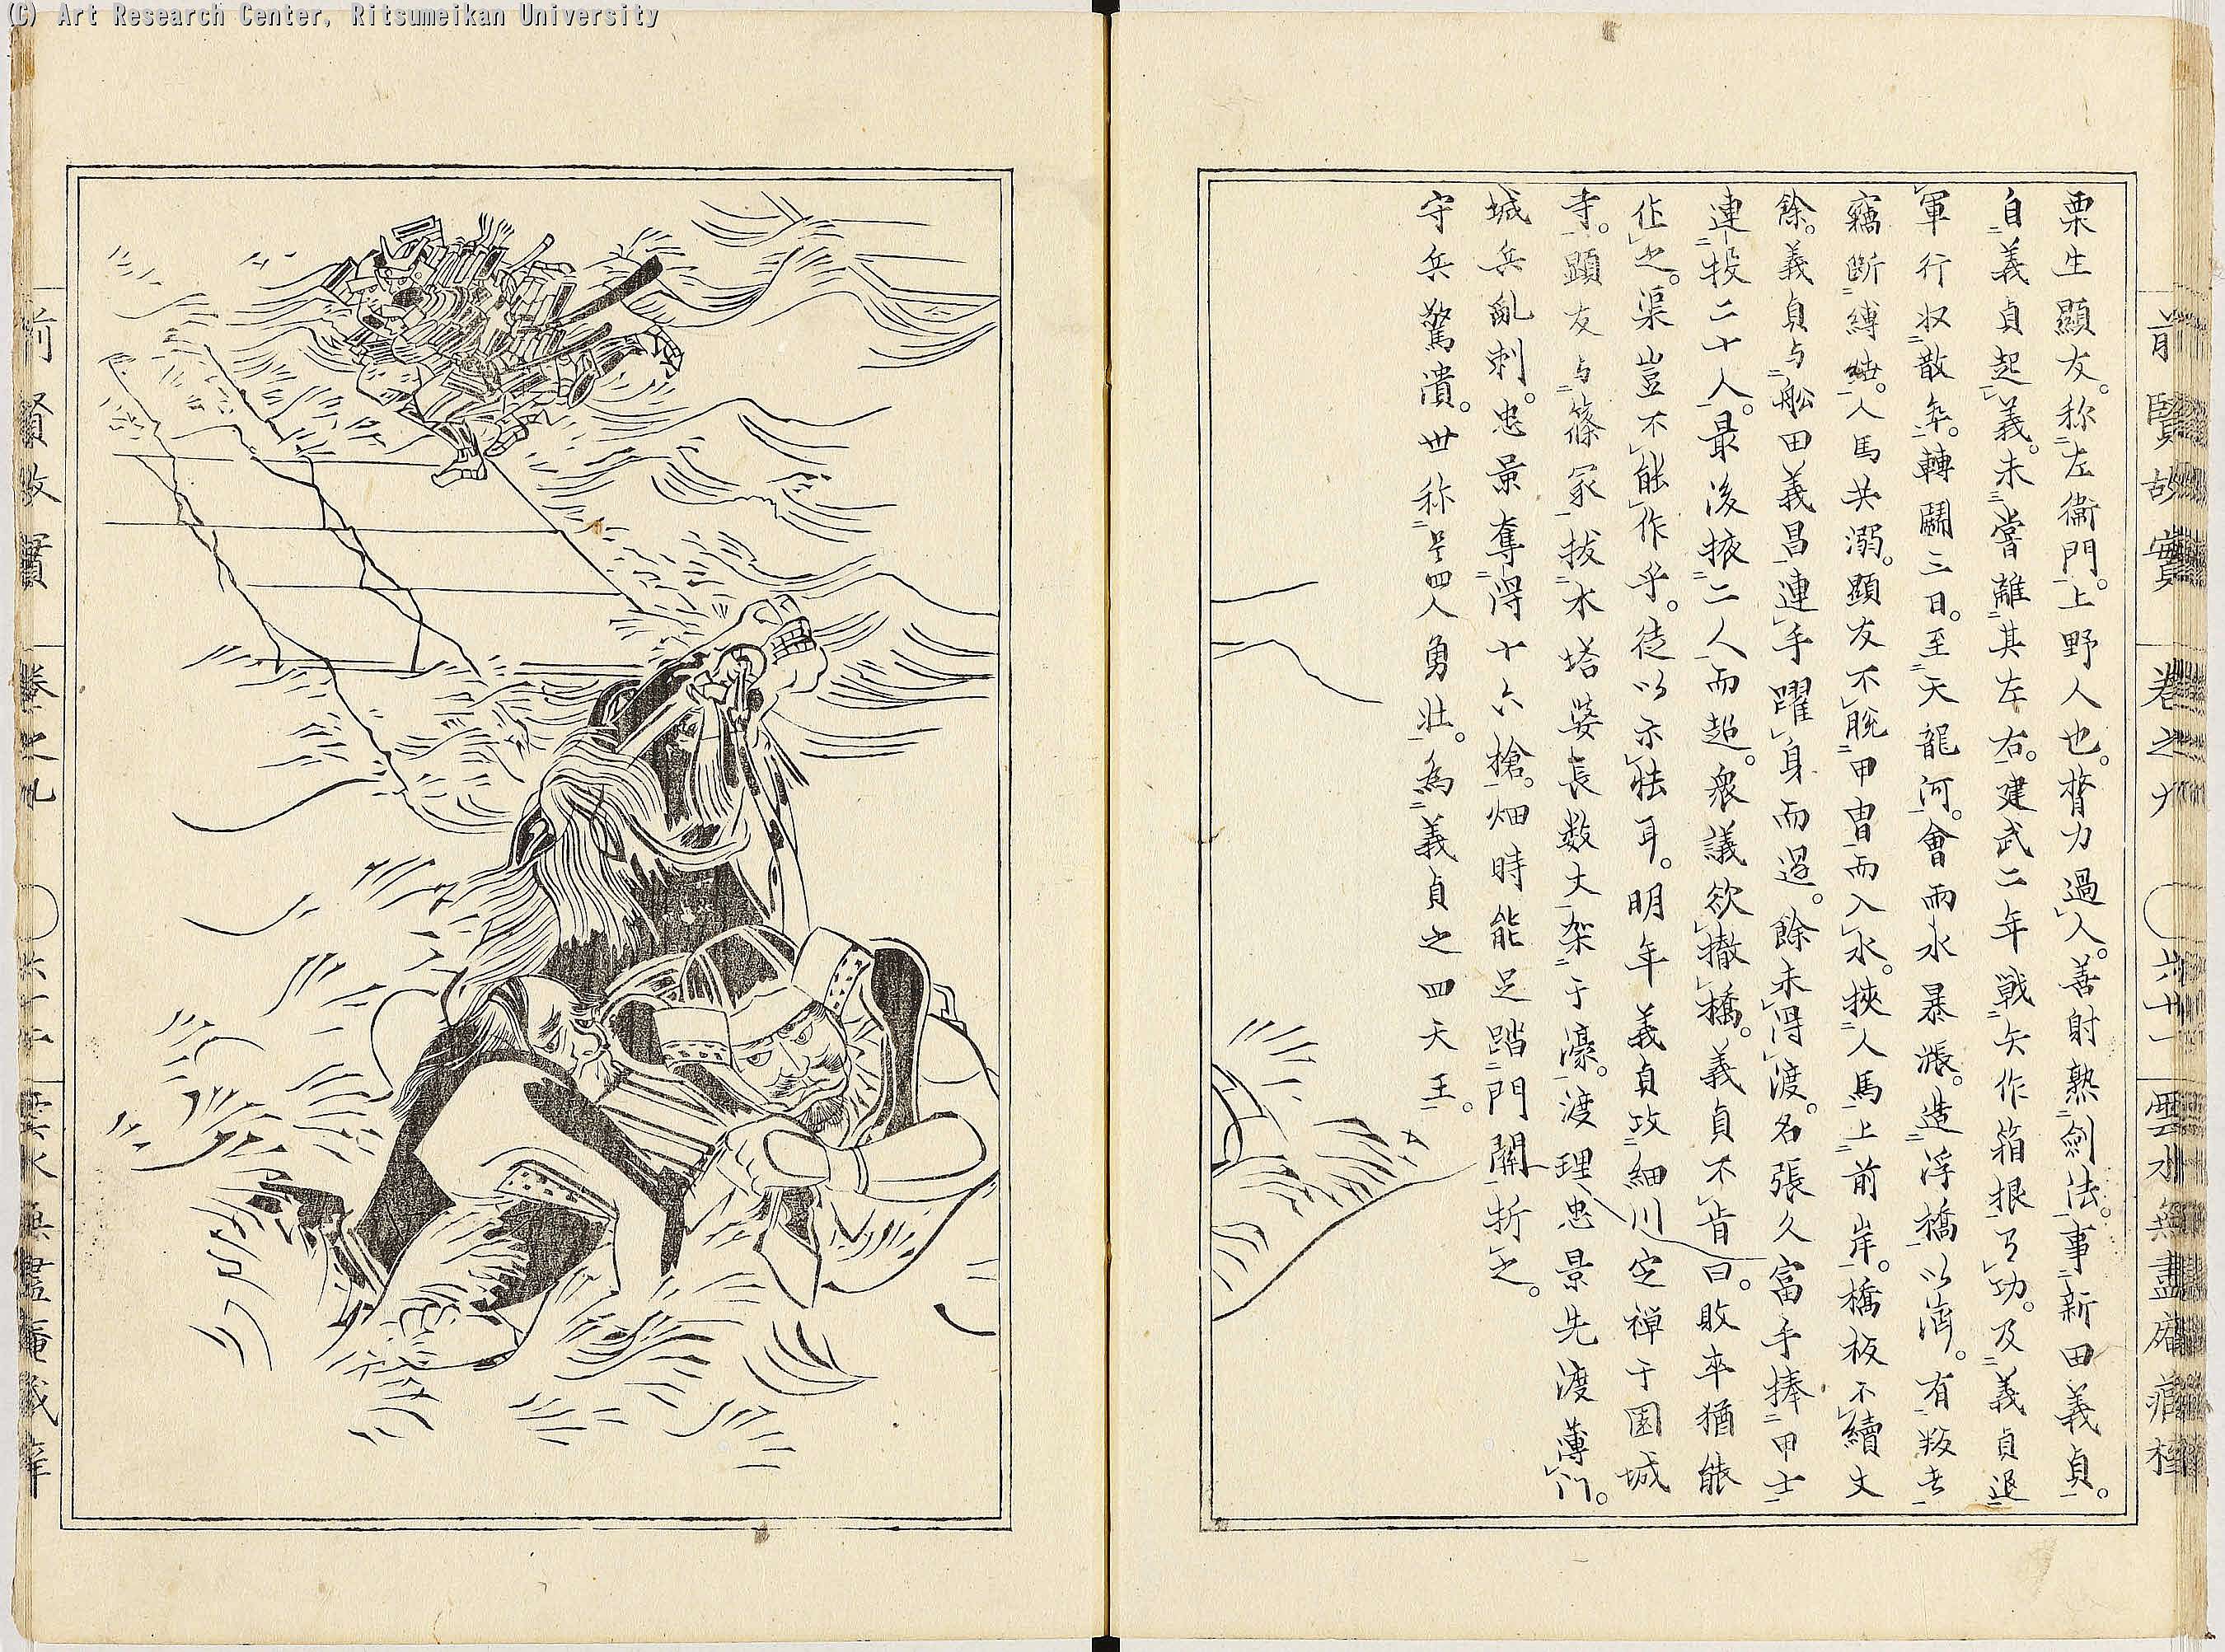 (C) Art Research Center, Ritsumeikan University
前賢故實 卷之九 〇六十一 雲水無盡庵藏梓
栗生顯友。称左衞門。上野人也。膂力過人。善射熟劍法。事新田義貞。
自義貞起義。未嘗離其左右。建武二年戦矢作箱根有功。及義貞退
軍行収散卒。轉鬭三日。至天龍河。會雨水暴漲。造浮橋以濟。有叛者
竊斷縛結。人馬共溺。顯友不脱甲冑而入水。挾人馬上前岸。橋板不續丈
餘。義貞与舩田義昌連手躍身而過。餘未得渡。名張久富手捧甲士
連投二十人。最後掖二人而超。衆議欲撤橋。義貞不肯曰。敗卒猶能
作之。渠豈不能作乎。徒以示怯耳。明年義貞攻細川定禅于園城
寺。顕友与篠冢拔木塔婆長数丈架于濠。渡理忠景先渡薄门。
城兵亂刺。忠景奪得十六槍。畑時能足踏門關折之。
守兵驚潰。世称是四人勇壮。為義貞之四天王。
前賢故實 卷之九 〇 雲水無盡庵藏梓